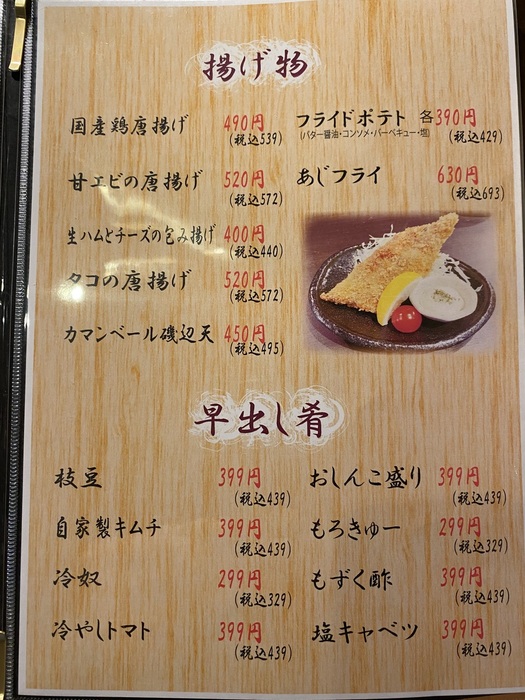 揚げ物
国産鶏唐揚げ 490円
(税込539)
甘エビの唐揚げ 520円
(税込572)
生ハムとチーズの包み揚げ 400円
(税込440)
タコの唐揚げ 520円
(税込572)
カマンベール磯辺天 450円
(税込495)
フライドポテト 各390円
(バター醤油・コンソメ・バーベキュー・塩) (税込429)
あじフライ 630円
(税込693)
早出し肴
枝豆 399円
(税込439)
自家製キムチ 399円
(税込439)
冷奴 299円
(税込329)
冷やしトマト 399円
(税込439)
おしんこ盛り 399円
(税込439)
もろきゅー 299円
(税込329)
もずく酢 399円
(税込439)
塩キャベツ 399円
(税込439)